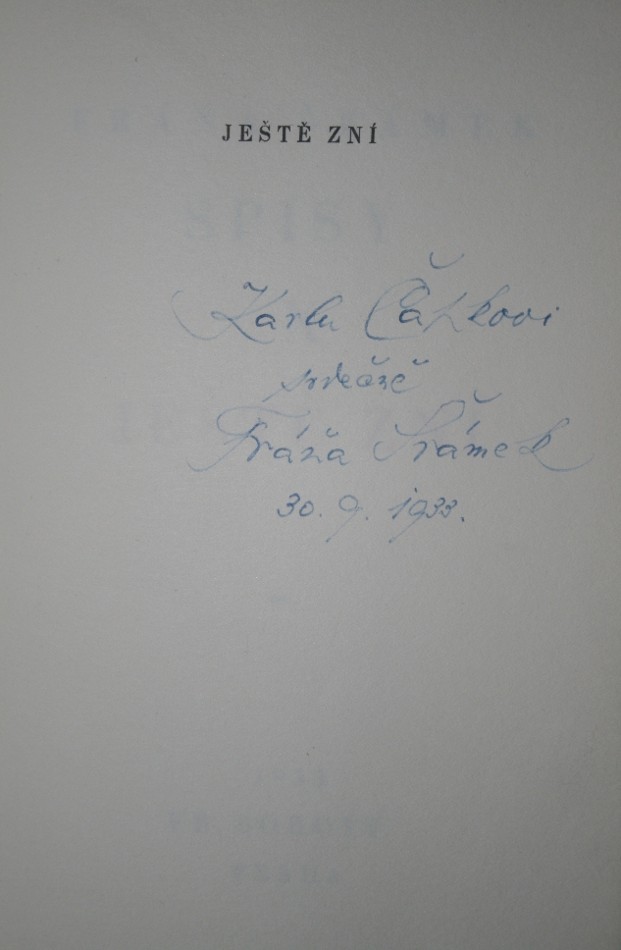 JEŠTĚ ZNÍ
Karlu Čapkovi
srdečně
Fráňa Šrámek
30. 9. 1933.